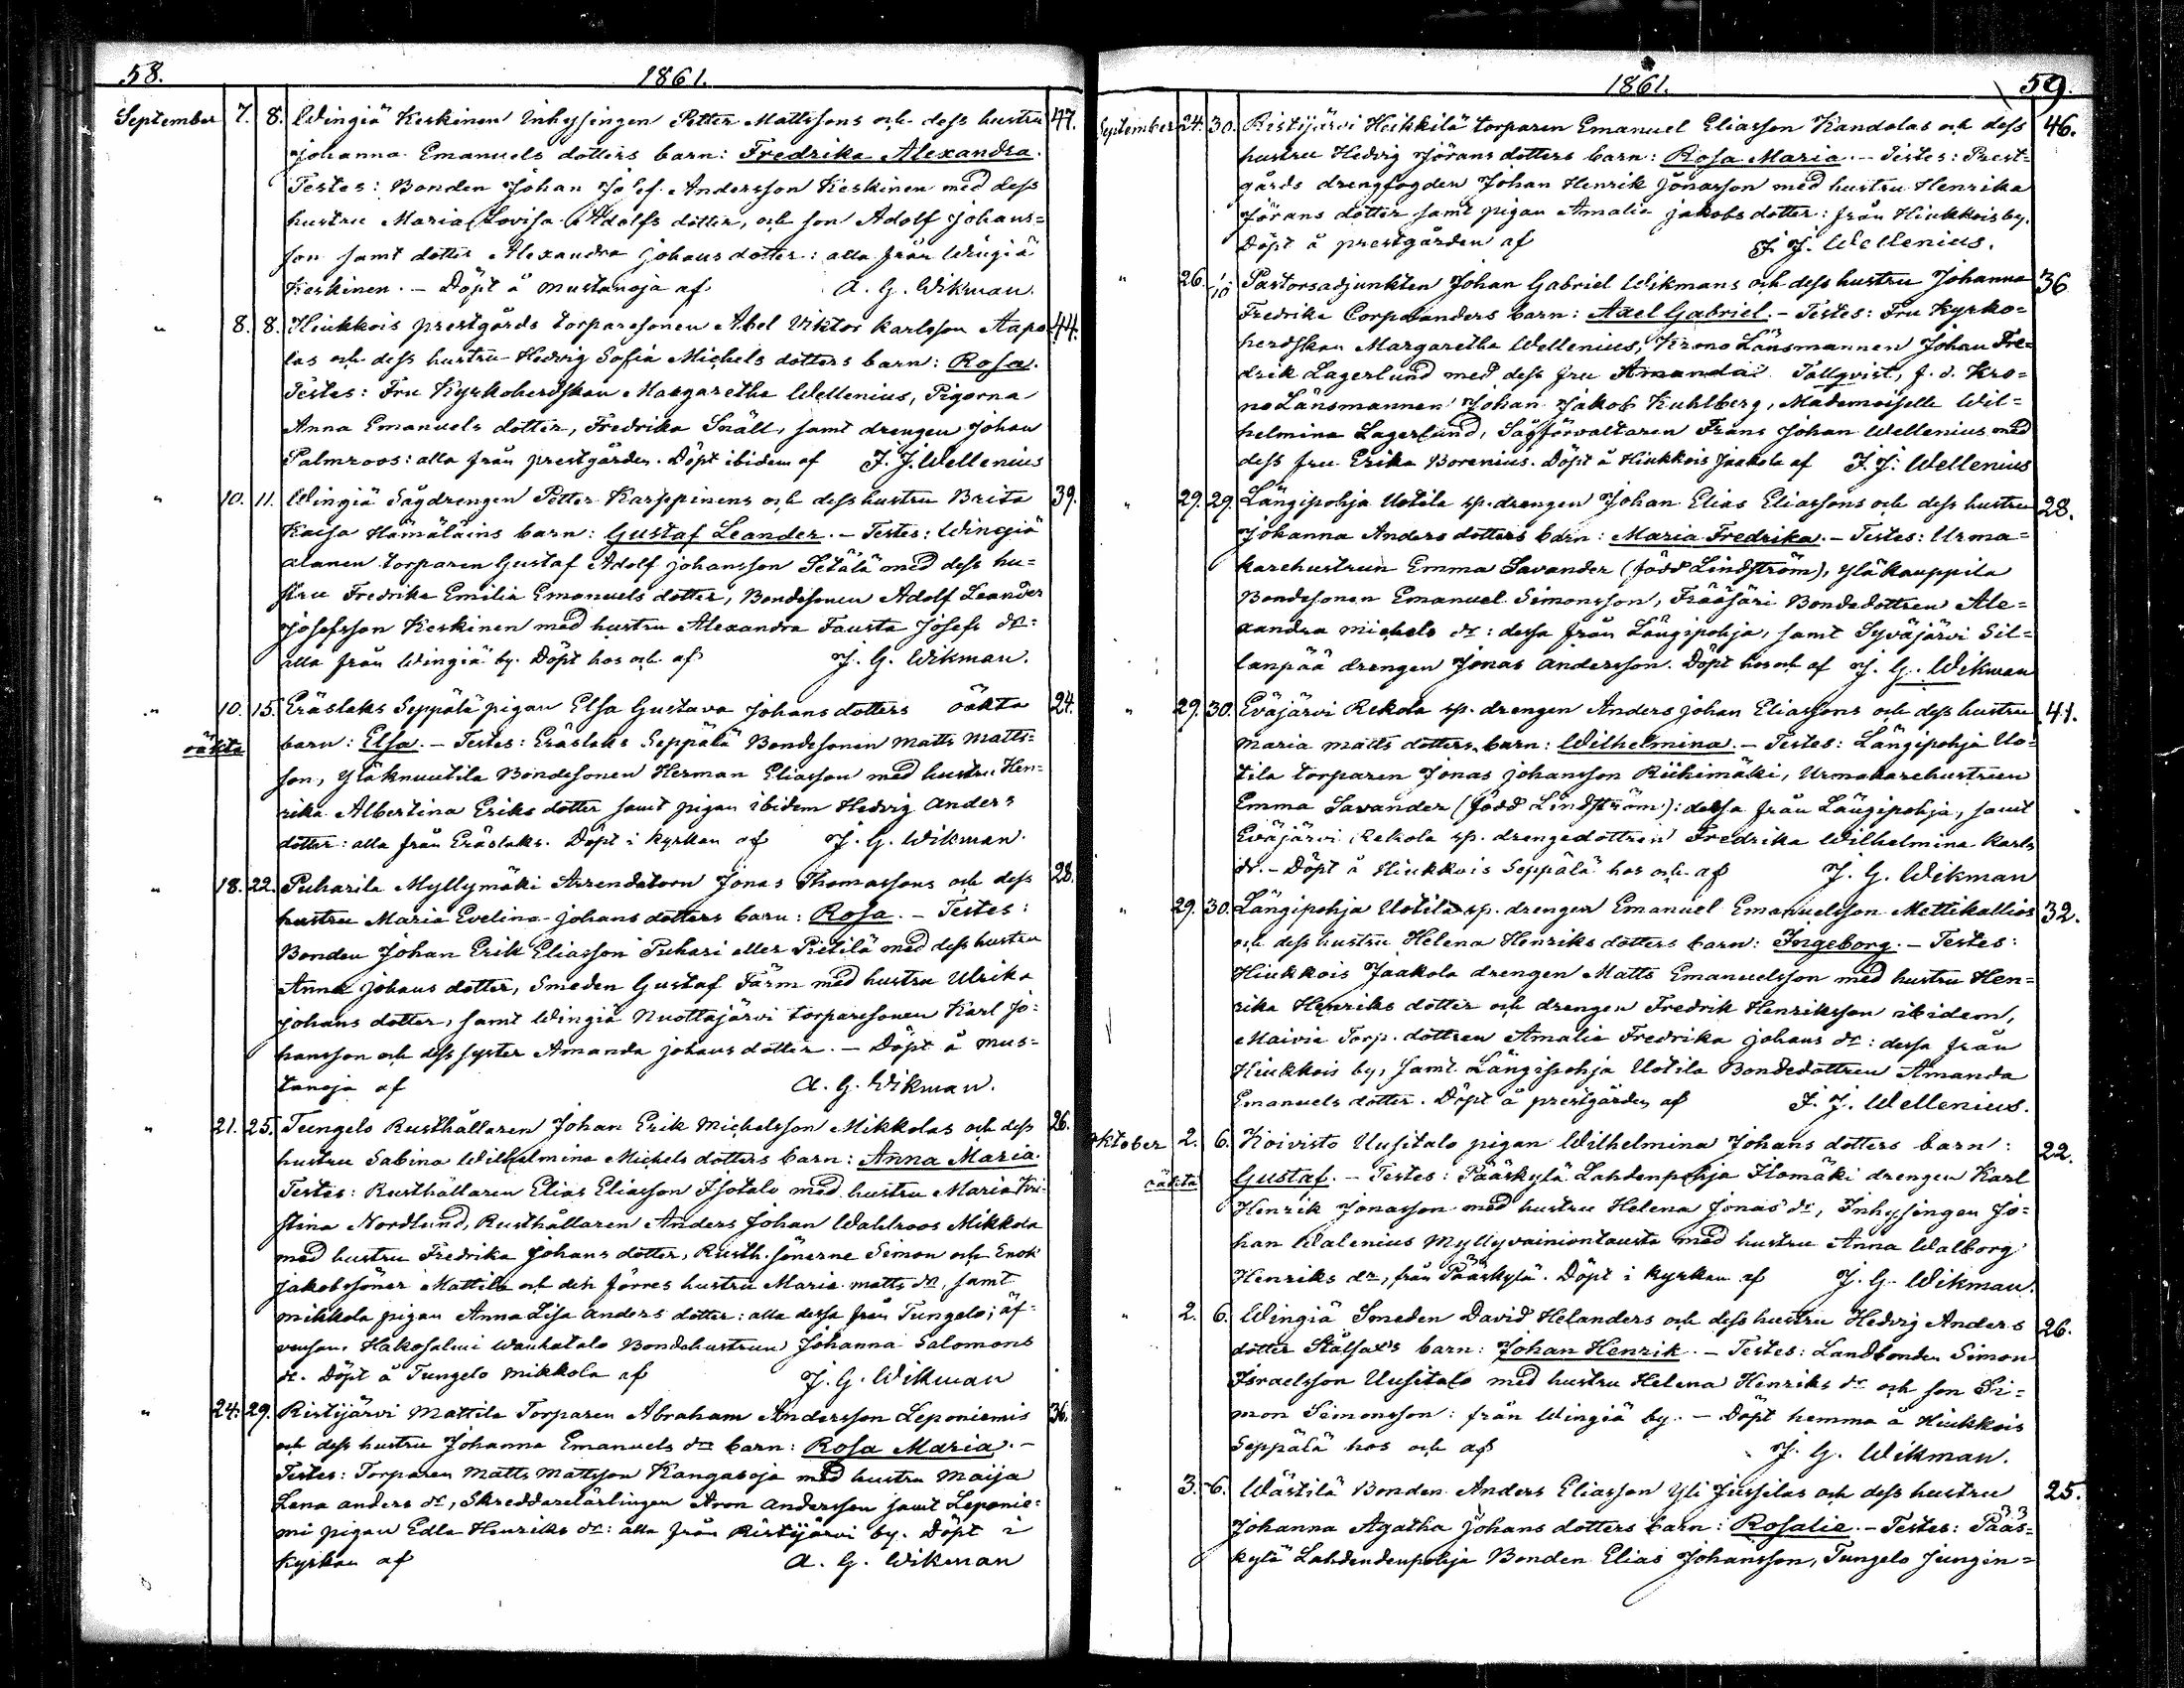 58.
1861.
September 7. 8. Wingiä Keskinen Inhysingen Petter Mattssons och dess hustru 47.
Johanna Emanuels dotters barn: Fredrika Alexandra.
Testes: Bonden Johan Josef Andersson Keskinen med dess
hustru Maria Lovisa Adolfs dotter, och son Adolf Johans=
son samt dotter Alexandra Johans dotter: alla från Wingiä
Keskinen. – Döpt å Mustanoja af A. G. Wikman.
" 8. 8. Hiukkois prestgårds torparesonen Abel Viktor Karlsson Aapo 44.
las och dess hustru Hedvig Sofia Michels dotters barn: Rosa.
Testes: Fru Kyrkoherdskan Margaretha Wellenius, Pigorna
Anna Emanuels dotter, Fredrika Snäll, samt drengen Johan
Palmroos: alla från prestgården. Döpt ibidem af J. J. Wellenius
" 10. 11. Wingiä Sågdrengen Petter Karppinens och dess hustru Brita 39.
Kaisa Hämäläins barn: Gustaf Leander. – Testes: Wingiä
alanen torparen Gustaf Adolf Johansson Setälä med dess hu=
stru Fredrika Emilia Emanuels dotter, Bondesonen Adolf Leander
Josefsson Keskinen med hustru Alexandra Fausta Josefs dr:
alla från Wingiä by. Döpt hos och af J. G. Wikman.
" 10. 15. Eräslaks Seppälä pigan Elsa Gustava Johans dotters oäkta 24.
oäkta barn: Elsa. – Testes: Eräslaks Seppälä Bondesonen Matts Matts=
son, Yläknuutila Bondesonen Herman Eliasson med hustru Hen=
rika Albertina Eriks dotter samt pigan ibidem Hedvig Anders
dotter: alla från Eräslaks. Döpt i kyrkan af J. G. Wikman.
" 18. 22. Puharila Myllymäki Arrendatorn Jonas Thomassons och dess 28.
hustru Maria Evelina Johans dotters barn: Rosa. – Testes:
Bonden Johan Erik Eliasson Puhari eller Pietilä med dess hustru
Anna Johans dotter, Smeden Gustaf Färm med hustru Ulrika
Johans dotter, samt Wingiä Nuottajärvi torparesonen Karl Jo=
hansson och dess syster Amanda Johans dotter. – Döpt å Mus=
tanoja af A. G. Wikman.
" 21. 25. Tungelo Rusthållaren Johan Erik Michelsson Mikkolas och dess 26.
hustru Sabina Wilhelmina Michels dotters barn: Anna Maria.
Testes: Rusthållaren Elias Eliasson Isotalo med hustru Maria Kri=
stina Nordlund, Rusthållaren Anders Johan Wahlroos Mikkola
med hustru Fredrika Johans dotter, Rusth. sönerne Simon och Enok
Jakobssöner Mattila och den förres hustru Maria Matts dr, samt
Mikkola pigan Anna Lisa Anders dotter: alla dessa från Tungelo; äf=
vensom Hakosalmi Wanhatalo Bondehustrun Johanna Salomons
dr. Döpt å Tungelo Mikkola af J. G. Wikman
" 24. 29. Ristijärvi Mattila Torparen Abraham Andersson Leponiemis 36.
och dess hustru Johanna Emanuels drs barn: Rosa Maria. –
Testes: Torparen Matts Mattsson Kangasoja med hustru Maija
Lena Anders dr, Skreddarelärlingen Aron Andersson samt Leponie=
mi pigan Edla Henriks dr: alla från Ristijärvi by. Döpt i
kyrkan af A. G. Wikman
1861.
59.
September 24. 30. Ristijärvi Heikkilä torparen Emanuel Eliasson Kandolas och dess 46.
hustru Hedvig Jörans dotters barn: Rosa Maria. – Testes: Prest=
gårds drengfogden Johan Henrik Jonasson med hustru Henrika
Jörans dotter samt pigan Amalia Jakobs dotter: från Hiukkois by.
Döpt å prestgården af J. J. Wellenius.
" 26. 1/10 Pastorsadjunkten Johan Gabriel Wikmans och dess hustru Johanna 36
Fredrika Corpolanders barn: Axel Gabriel. – Testes: Fru Kyrko=
herdskan Margaretha Wellenius, Krono Länsmannen Johan Fre=
drik Lagerlund med dess fru Amanda Tallqvist, f. d. Kro=
no Länsmannen Johan Jakob Kuhlberg, Mademoiselle Wil=
helmina Lagerlund, Sågförvaltaren Frans Johan Wellenius med
dess fru Erika Borenius. Döpt å Hiukkois Jaakola af J. J. Wellenius
" 29. 29. Längipohja Uotila sp. drengen Johan Elias Eliassons och dess hustru 28.
Johanna Anders dotters barn: Maria Fredrika. – Testes: Urma=
karehustrun Emma Savander (född Lindström), Yläkauppila
Bondesonen Emanuel Simonsson, Frääsäri Bondedottren Ale=
xandra Michels dr: dessa från Längipohja, samt Syväjärvi Sil=
lanpää drengen Jonas Andersson. Döpt hos och af J. G. Wikman
" 29. 30. Eväjärvi Rekola sp. drengen Anders Johan Eliassons och dess hustru 41.
Maria Matts dotters barn: Wilhelmina. – Testes: Längipohja Uo=
tila torparen Jonas Johansson Riihimäki, Urmakarehustrun
Emma Savander (född Lindström): dessa från Längipohja, samt
Eväjärvi Rekola sp. drengedottren Fredrika Wilhelmina Karls
dr. – Döpt å Hiukkois Seppälä hos och af J. G. Wikman
" 29. 30. Längipohja Uotila sp. drengen Emanuel Emanuelsson Mettikallios 32.
och dess hustru Helena Henriks dotters barn: Ingeborg. – Testes:
Hiukkois Jaakola drengen Matts Emanuelsson med hustru Hen=
rika Henriks dotter och drengen Fredrik Henriksson ibidem,
Maivia Torp. dottren Amalia Fredrika Johans dr: dessa från
Hiukkois by, samt Längipohja Uotila Bondedottren Amanda
Emanuels dotter. Döpt å prestgården af J. J. Wellenius.
Oktober 2. 6. Koivisto Uusitalo pigan Wilhelmina Johans dotters barn: 22.
oäkta Gustaf. – Testes: Pääskylä Lahdenpohja Ilomäki drengen Karl
Henrik Jonasson med hustru Helena Jonas dr, Inhysingen Jo=
han Walenius Myllyvainiontausta med hustru Anna Walborg
Henriks dr, från Pääskylä. Döpt i kyrkan af J. G. Wikman.
" 2. 6. Wingiä Smeden David Helanders och dess hustru Hedvig Anders 26.
dotter barn: Johan Henrik. – Testes: Landbonden Simon
Israelsson Uusitalo med hustru Helena Henriks dr och son Si=
mon Simonsson: från Wingiä by. – Döpt hemma å Hiukkois
Seppälä hos och af J. G. Wikman.
" 3. 6. Wästilä Bonden Anders Eliasson Yli Jussilas och dess hustru 25.
Johanna Agatha Johans dotters barn: Rosalie. – Testes: Pääs=
kylä Lahdendenpohja Bonden Elias Johansson, Tungelo Jungin=